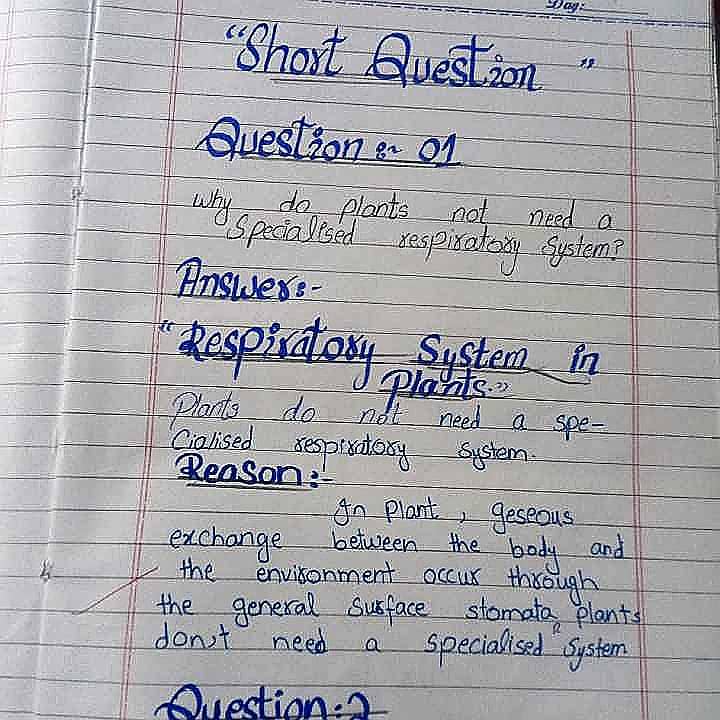 Day:
"Short Question"
Question :- 01
Why do plants not need a
Specialised respiratory System?
Answer:-
"Respiratory System in
Plants."
Plants do not need a spe-
cialised respiratory system.
Reason:-
In Plant, geseous
exchange between the body and
the environment occur through
the general surface stomata, plants
don,t need a specialised "System
Question:2